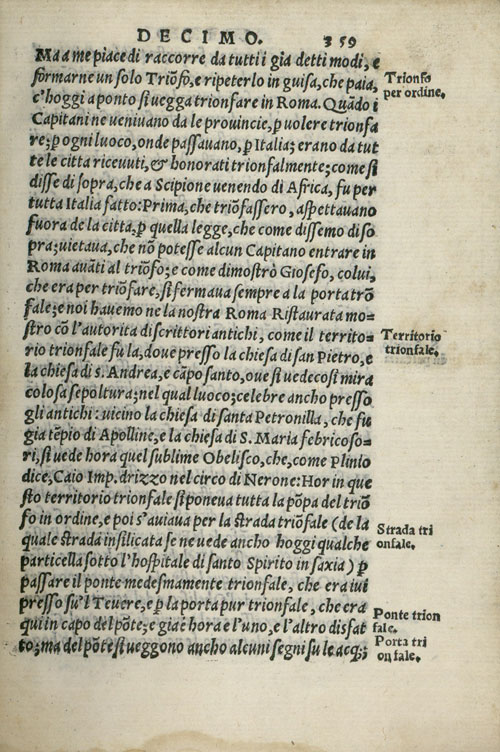 DECIMO. 359
Ma a me piace di raccorre da tutti i gia detti modi, e
formarne un solo Triõfo, e ripeterlo in guisa, che paia,
c'hoggi a ponto si uegga trionfare in Roma. Quãdo i
Capitani ne ueniuano da le prouincie, p uolere trionfa
re; p ogni luoco, onde passauano, p Italia; erano da tut
te le citta riceuuti, & honorati trionfalmente; come si
disse di sopra, che a Scipione uenendo di Africa, fu per
tutta Italia fatto: Prima, che triõfassero, aspettauano
fuora de la citta, p quella legge, che come dissemo di so
pra; uietaua, che nõ potesse alcun Capitano entrare in
Roma auãti al triõfo; e come dimostrò Giosefo, colui,
che era per triõfare, si fermaua sempre a la porta trõ
fale; e noi hauemo ne la nostra Roma Ristaurata mo=
stro cõ l'autorita di scrittori antichi, come il territo=
rio trionfale fu la, doue presso la chiesa di san Pietro, e
la chiesa di S. Andrea, e cãpo santo, oue si uede cosi mira
colosa sepoltura; nel qual luoco; celebre ancho presso
gli antichi: uicino la chiesa di santa Petronilla, che fu
gia tẽpio di Apolline, e la chiesa di S. Maria febricoso=
ri, si uede hora quel sublime Obelisco, che, come Plinio
dice, Caio Imp. drizzo nel circo di Nerone: Hor in que
sto territorio trionfale si poneua tutta la põpa del triõ
fo in ordine, e poi s'auiaua per la strada triõfale (de la
quale strada insilicata se ne uede ancho hoggi qualche
particella sotto l'hospitale di santo Spirito in saxia) p
passare il ponte medesmamente trionfale, che era iui
presso su'l Teuere, e p la porta pur trionfale, che era
qui in capo del põte; e gia è hora e l'uno, e l'altro disfat
to; ma del põte si ueggono ancho alcuni segni su le acq;
Trionfo
per ordine.
Territorio
trionfale.
Strada tri
onfale.
Ponte trion
fale.
Porta tri
onfale.